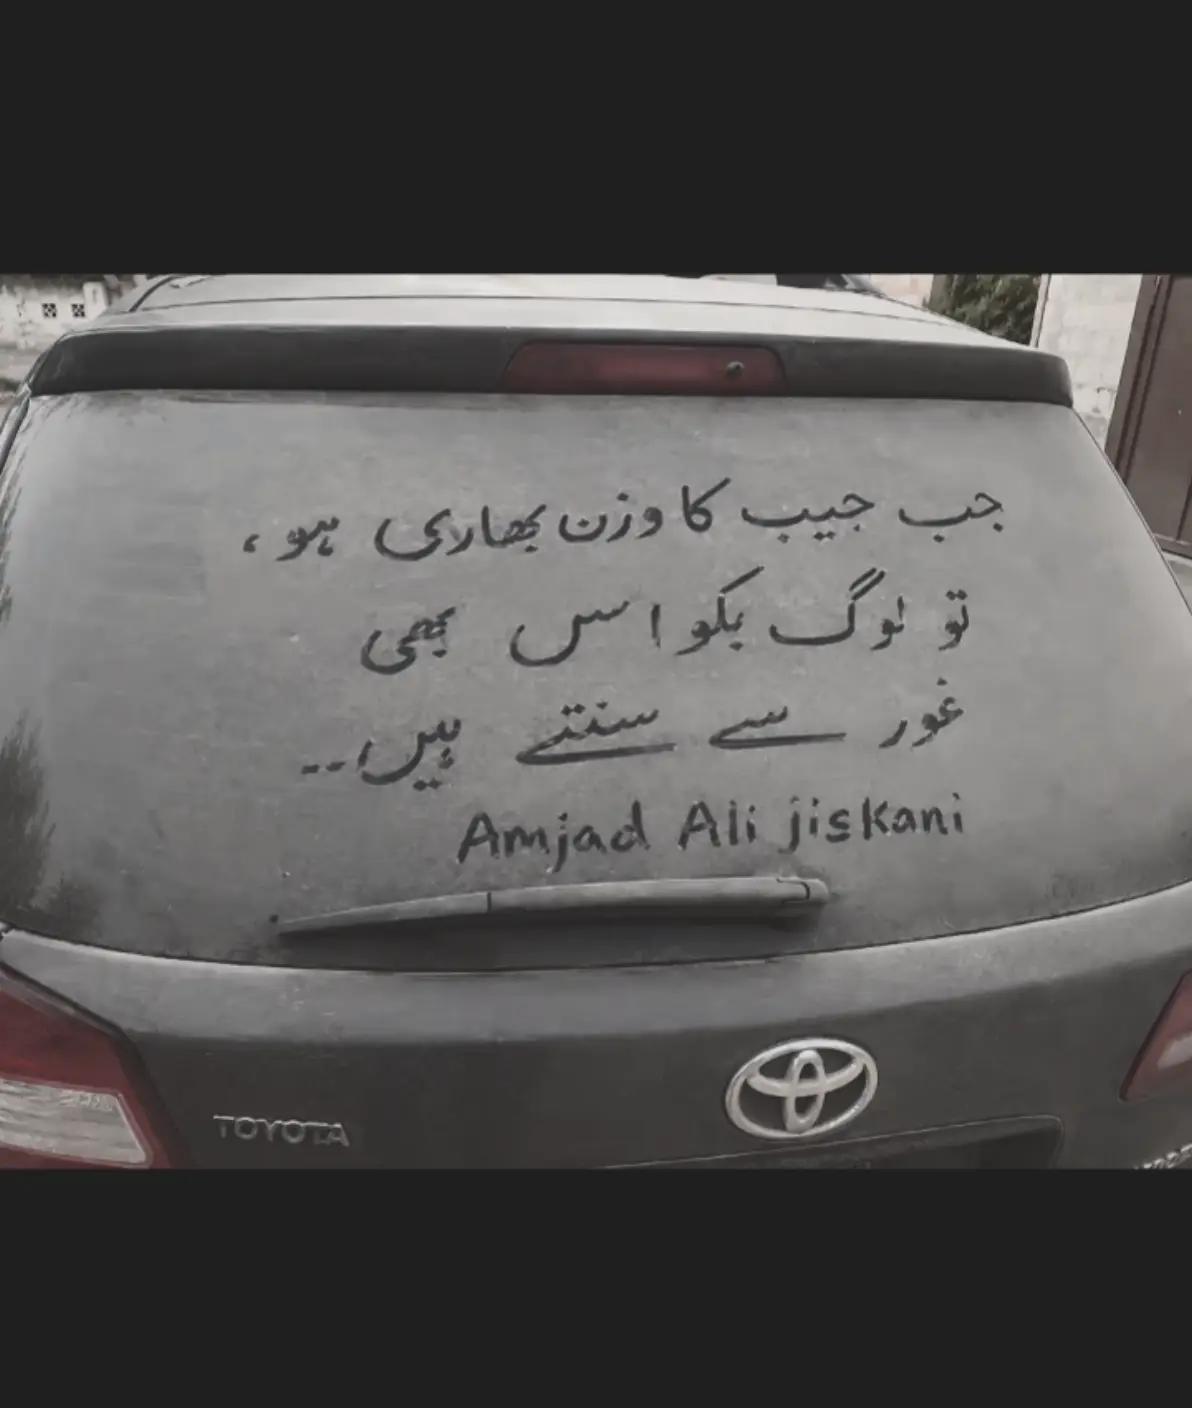 جب جیب کا وزن بھاری ہو،
تو لوگ بکواس بھی
غور سے سنتے ہیں،۔۔
Amjad Ali jiskani
TOYOTA